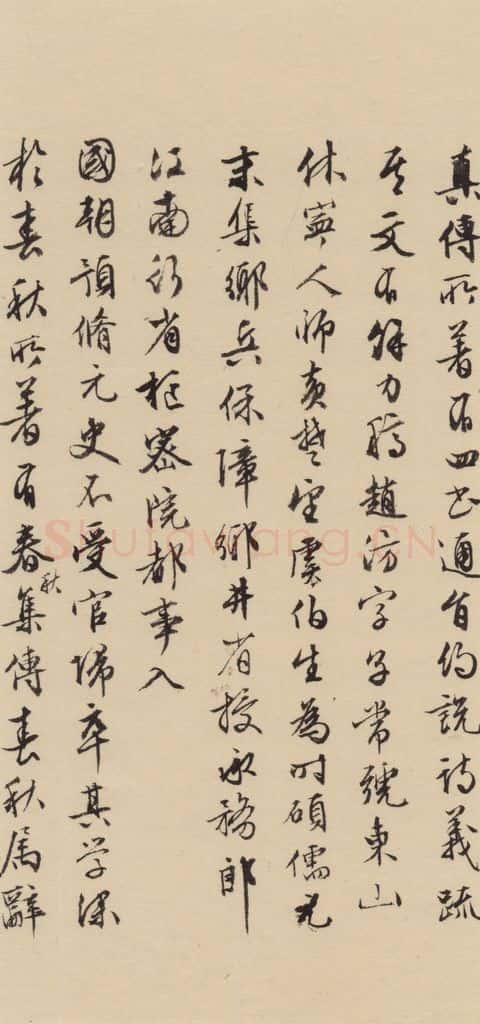 真傳所著有四書通旨約說詩義疏
其文有餘力稿趙汸字子常號東山
休寧人師黃楚望虞伯生為時碩儒元
末集鄉兵保障鄉井省授承務郎
江南行省樞密院都事入
國朝預脩元史不受官歸卒其学深
於春秋所著有春秋集傳春秋属辭
ShufaWang.CN